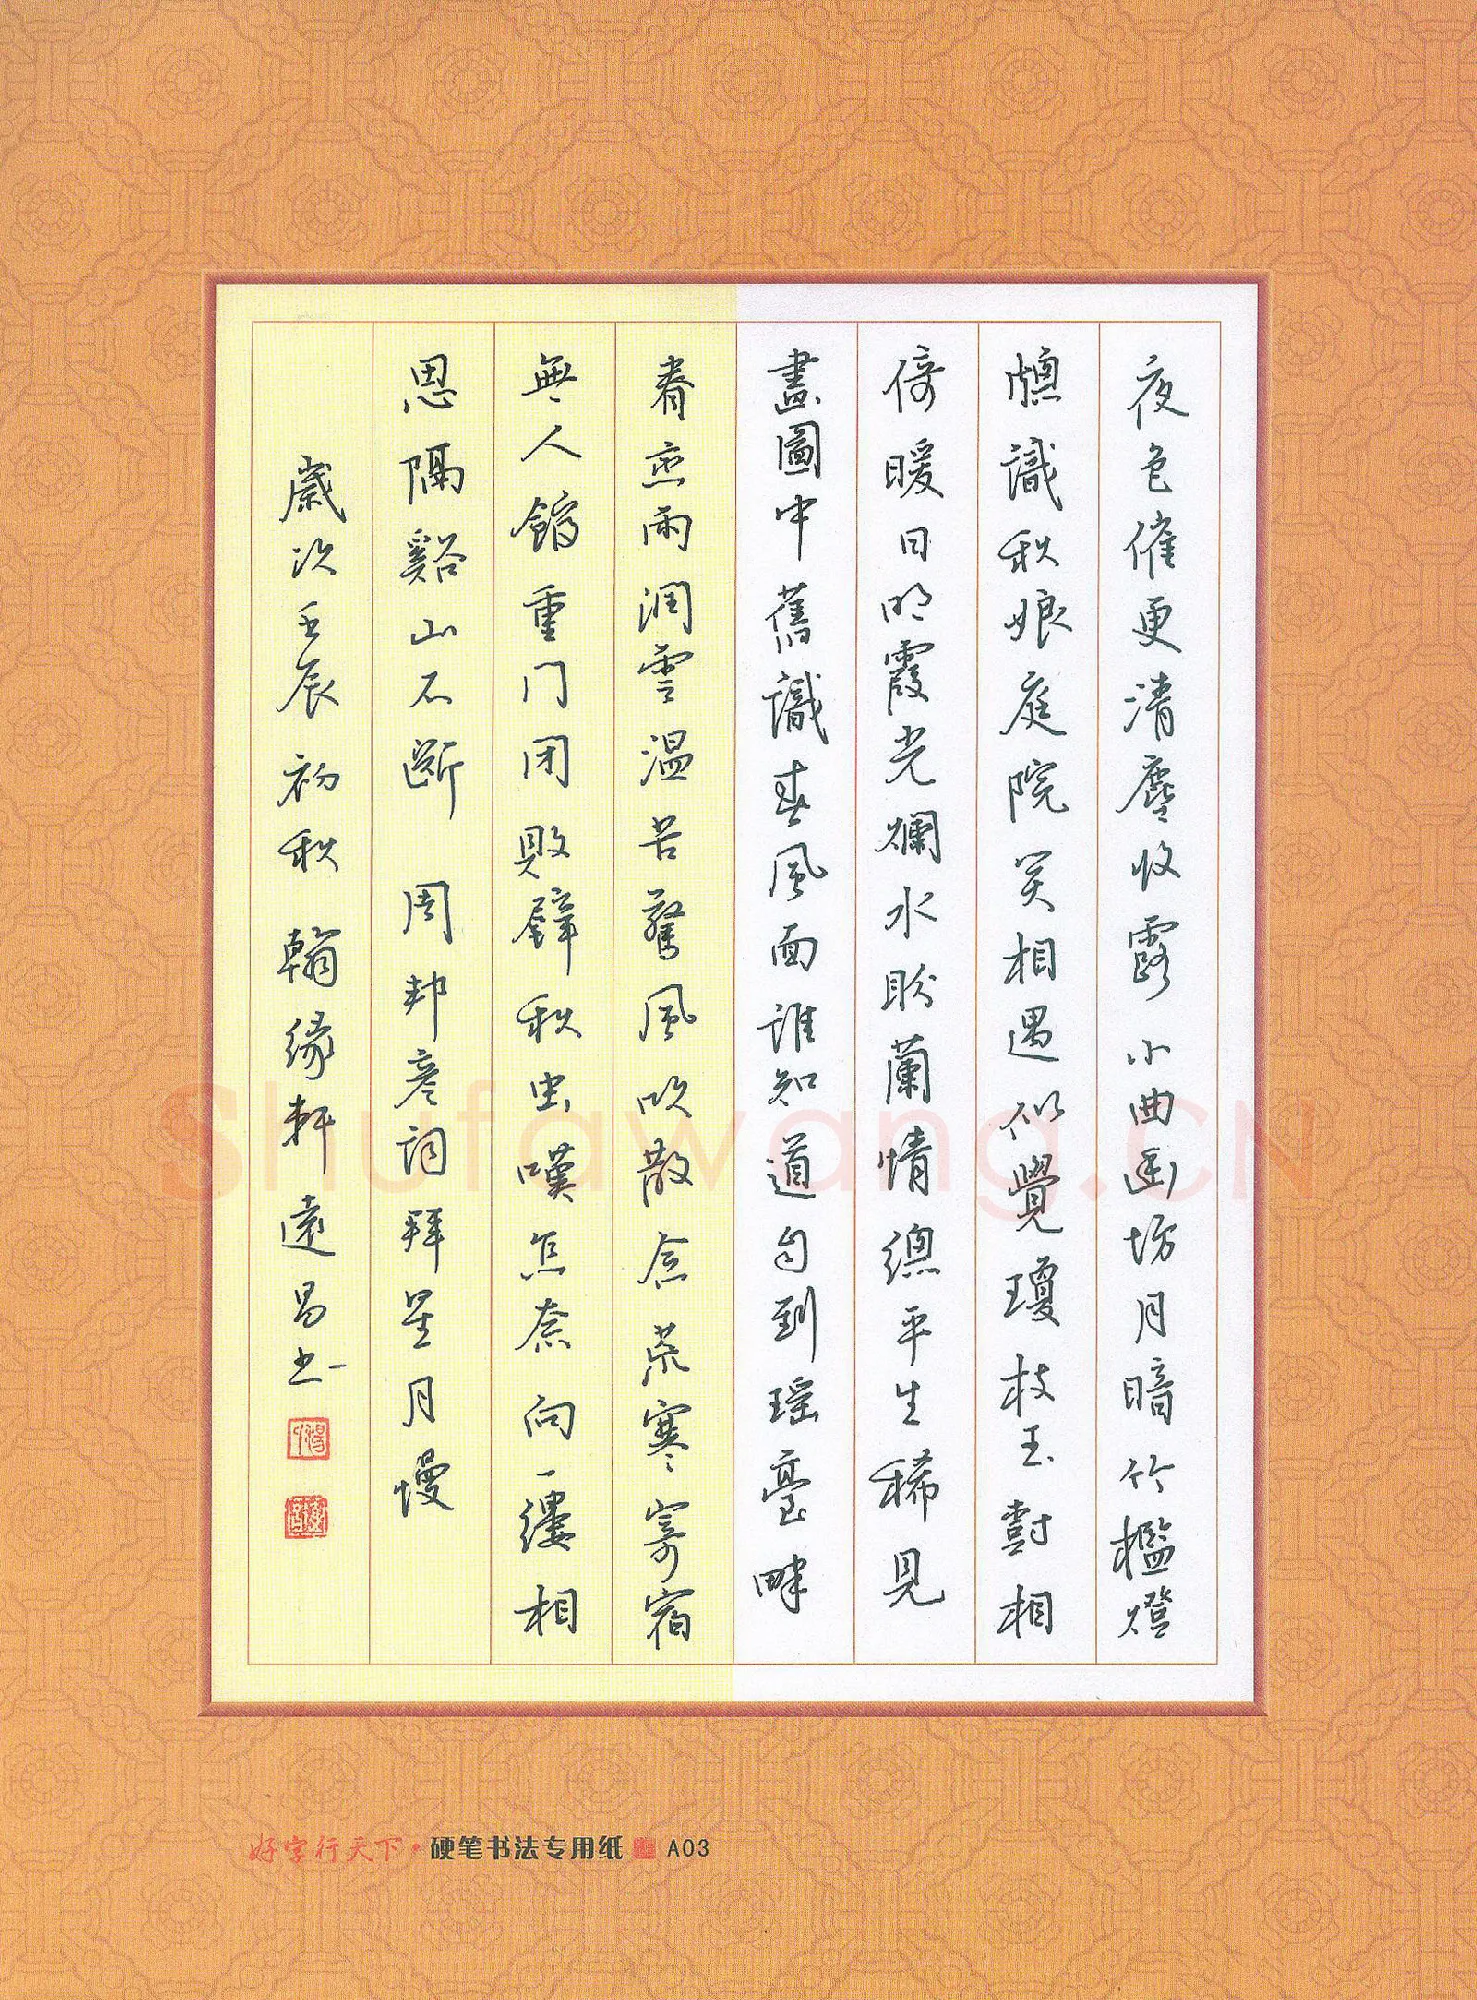 夜色催更清塵收露小曲幽坊月暗竹檻燈
牕識秋娘庭院笑相遇似覺瓊枝玉樹相
倚暖日明霞光爛水盼蘭情總平生稀見
畫圖中舊識春風面誰知道自到瑶臺畔
眷戀雨潤雲温苦驚風吹散念荒寒寄宿
無人館重门闭敗壁秋虫嘆怎奈向一縷相
思隔谿山不斷 周邦彦詞拜星月慢
歲次壬辰初秋翰缘軒遠昌书
Shufawang.CN
好字行天下·硬笔书法专用纸 A03